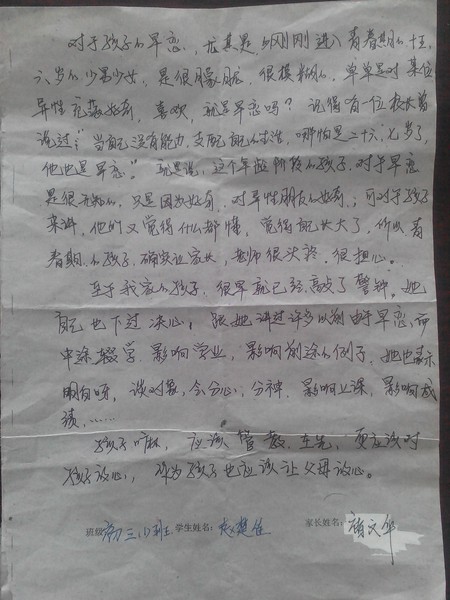 对于孩子的早恋，尤其是刚刚进入青春期的十五、
六岁的少男少女，是很朦胧、很模糊的，单单是对某位
异性充满好奇，喜欢，就是早恋吗？记得有一位校长曾
说过："当自己没有能力支配自己的生活，哪怕是二十六、七岁了，
他也是早恋。"就是说，这个年龄阶段的孩子，对于早恋
是很无知的，只是因为好奇、对异性朋友的好奇；可对于孩子
来讲，他们又觉得什么都懂，觉得自己长大了，所以青
春期的孩子，确实让家长，老师很头疼，很担心。
至于我家的孩子，很早就已经敲了警钟，她
自己也下过决心，跟她讲过许多以前由于早恋，而
中途辍学，影响学业，影响前途的例子，她也表示
明白呀，谈对象，会分心，分神，影响上课，影响成
绩，……
孩子嘛，应该管教在先，更应该对
孩子放心，作为孩子也应该让父母放心。
班级：初三、(1)班 学生姓名：赵楚佳 家长姓名：颜文华